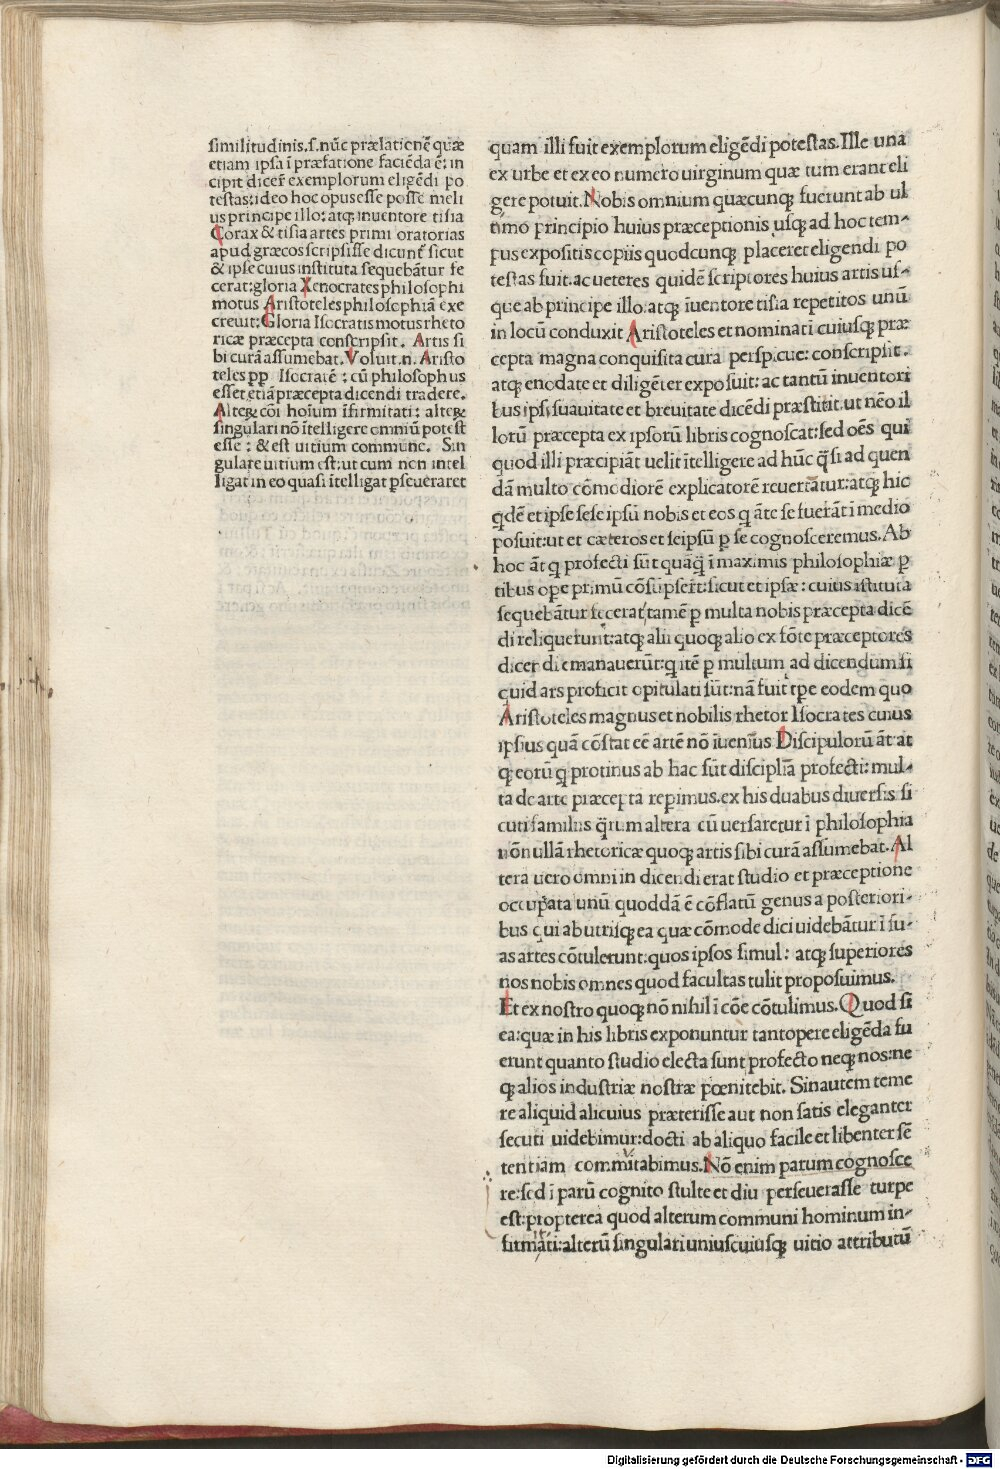 similitudinis.s.nūc prælationē quæ
etiam ipsa ī præfatione faciēda ē: in
cipit dicer̄ exemplorum eligēdi po
testas: ideo hoc opus esse posse meli
us principe illo: atq; inuentore tisia
Corax & tisia artes primi oratorias
apud græcos scripsisse dicunt̄ sicut
& ipse cuius instituta sequebātur fe
cerat: gloria Xenocrates philosophi
motus Aristoteles philosophiā exe
rcreuit: Gloria Isocratis motus rheto
ricæ præcepta conscripsit. Artis si
bi curā assumebat. Voluit .n. Aristo
teles ꝓp Isocratē : cū philosophus
esset etiā præcepta dicendi tradere.
Alteꝝ cōi hoīum īfirmitati: alteꝝ
singulari nō ītelligere omniū potest
esse : & est uitium commune. Sin
gulare uitium est: ut cum non intel
ligat in eo quasi ītelligat ꝑseueraret
quam illi fuit exemplorum eligēdi potestas. Ille una
ex urbe et ex eo numero uirginum quæ tum erant eli
gere potuit. Nobis omnium quæcunq; fuerunt ab ul
timo principio huius præceptionis usq; ad hoc tem-
pus expositis copiis quodcunq; placeret eligendi po
testas fuit. ac ueteres quidē scriptores huius artis us-
que ab principe illo: atq; īuentore tisia repetitos unū
in locū conduxit Aristoteles et nominati cuiusq; præ
cepta magna conquisita cura perspicue: conscripsit.
atq; enodate et diligēter exposuit: ac tantū inuentori
bus ipsis suauitate et breuitate dicēdi præstitit. ut nēo il
lorū præcepta ex ipsorū libris cognoscat: sed oēs qui
quod illi præcipiāt uelit ītelligere ad hūc q̄si ad quen
dā multo cōmodiorē explicatorē reuertātur: atq; hic
qdē et ipse sese ipsū nobis et eos q āte se fuerāt ī medio
posuit: ut et cæteros et seipsū ꝑ se cognosceremus. Ab
hoc āt q profecti sūt quāq̄ ī maximis philosophiæ ꝑ
tibus oꝑe primū cōsūpsert̄: sicut et ipsæ: cuius īstituta
sequebātur fecerat, tamē ꝑ multa nobis præcepta dicē
di reliquerunt: atq; alii quoq; alio ex fōte præceptores
dicer di emanauerūt: q itē ꝑ multum ad dicendum si
quid ars proficit opitulati sūt: nā fuit tꝑe eodem quo
Aristoteles magnus et nobilis rhetor Isocrates cuius
ipsius quā cōstat eē artē nō īuenius Discipulorū āt at
q; eorū q protinus ab hac sūt disciplīa profecti: mul-
ta de arte præcepta repimus. ex his duabus diuersis si
cuti familiis q̄rum altera cū uersaretur ī philosophia
nōn ullā rhetoricæ quoq; artis sibi curā assumebat. Al
tera uero omni in dicendi erat studio et præceptione
occupata unū quoddā ē cōflatū genus a posteriori-
bus qui ab utrisq; ea quæ cōmode dici uidebātur ī su-
as artes cōtulerunt: quos ipsos simul: atq; superiores
nos nobis omnes quod facultas tulit proposuimus.
Et ex nostro quoq; nō nihil ī cōe cōtulimus. Quod si
ea: quæ in his libris exponuntur tantopere eligēda fu
erunt quanto studio electa sunt profecto neq; nos: ne
q; alios industriæ nostræ pœnitebit. Sin autem teme
re aliquid alicuius præterisse aut non satis eleganter
secuti uidebimur: docti ab aliquo facile et libenter sē
tentiam commitabimus. Nō enim parum cognosce
re: sed ī parū cognito stulte et diu perseuerasse turpe
est: propterea quod alterum communi hominum in-
firmāti: alterū singulari uniuscuiusq; uitio attributū
Digitalisierung gefördert durch die Deutsche Forschungsgemeinschaft - DFG